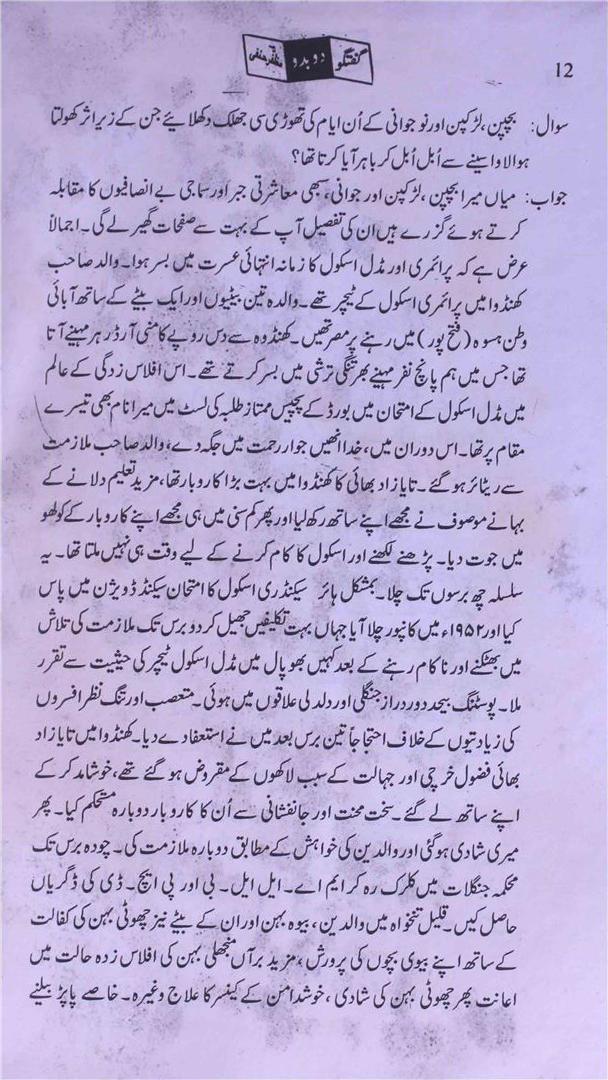 گفتگو دو بدو مظفر حنفی
12
سوال: بچپن، لڑکپن اور نوجوانی کے اُن ایام کی تھوڑی سی جھلک دکھلایئے جن کے زیر اثر کھولتا
ہوا لاوا سینے سے اُبل اُبل کر باہر آیا کرتا تھا؟
جواب: میاں میرا بچپن، لڑکپن اور جوانی، سبھی معاشرتی جبر اور سماجی بے انصافیوں کا مقابلہ
کرتے ہوئے گزرے ہیں ان کی تفصیل آپ کے بہت سے صفحات گھیر لے گی۔ اجمالاً
عرض ہے کہ پرائمری اور مڈل اسکول کا زمانہ انتہائی عسرت میں بسر ہوا۔ والد صاحب
کھنڈوا میں پرائمری اسکول کے ٹیچر تھے۔ والدہ تین بیٹیوں اور ایک بیٹے کے ساتھ آبائی
وطن ہسوہ (فتح پور) میں رہنے پر مصر تھیں۔ کھنڈوہ سے دس روپے کا منی آرڈر ہر مہینے آتا
تھا جس میں ہم پانچ نفر مہینے بھر تنگی ترشی میں بسر کرتے تھے۔ اس افلاس زدگی کے عالم
میں مڈل اسکول کے امتحان میں بورڈ کے پچیس ممتاز طلبہ کی لسٹ میں میرا نام بھی تیسرے
مقام پر تھا۔ اس دوران میں، خدا انھیں جوار رحمت میں جگہ دے، والد صاحب ملازمت
سے ریٹائر ہو گئے۔ تایازاد بھائی کا کھنڈوا میں بہت بڑا کاروبار تھا، مزید تعلیم دلانے کے
بہانے موصوف نے مجھے اپنے ساتھ رکھ لیا اور پھر کم سنی میں ہی مجھے اپنے کاروبار کے کولھو
میں جوت دیا۔ پڑھنے لکھنے اور اسکول کا کام کرنے کے لیے وقت ہی نہیں ملتا تھا۔ یہ
سلسلہ چھ برسوں تک چلا۔ بمشکل ہائر سیکنڈری اسکول کا امتحان سیکنڈ ڈویژن میں پاس
کیا اور ۱۹۵۲ء میں کانپور چلا آیا جہاں بہت تکلیفیں جھیل کر دو برس تک ملازمت کی تلاش
میں بھٹکنے اور ناکام رہنے کے بعد کہیں بھوپال میں مڈل اسکول ٹیچر کی حیثیت سے تقرر
ملا۔ پوسٹنگ بیحد دور دراز جنگلی اور دلدلی علاقوں میں ہوئی۔ متعصب اور تنگ نظر افسروں
کی زیادتیوں کے خلاف احتجاجاً تین برس بعد میں نے استعفا دے دیا۔ کھنڈوا میں تایازاد
بھائی فضول خرچی اور جہالت کے سبب لاکھوں کے مقروض ہو گئے تھے، خوشامد کر کے
اپنے ساتھ لے گئے۔ سخت محنت اور جانفشانی سے اُن کا کاروبار دوبارہ مستحکم کیا۔ پھر
میری شادی ہو گئی اور والدین کی خواہش کے مطابق دوبارہ ملازمت کی۔ چودہ برس تک
محکمہ جنگلات میں کلرک رہ کر ایم اے۔ ایل ایل۔ بی اور پی ایچ۔ ڈی کی ڈگریاں
حاصل کیں۔ قلیل تنخواہ میں والدین، بیوہ بہن اور ان کے بیٹے نیز چھوٹی بہن کی کفالت
کے ساتھ اپنے بیوی بچوں کی پرورش، مزید برآں منجھلی بہن کی افلاس زدہ حالت میں
اعانت پھر چھوٹی بہن کی شادی، خوشدامن کے کینسر کا علاج وغیرہ۔ خاصے پاپڑ بیلنے